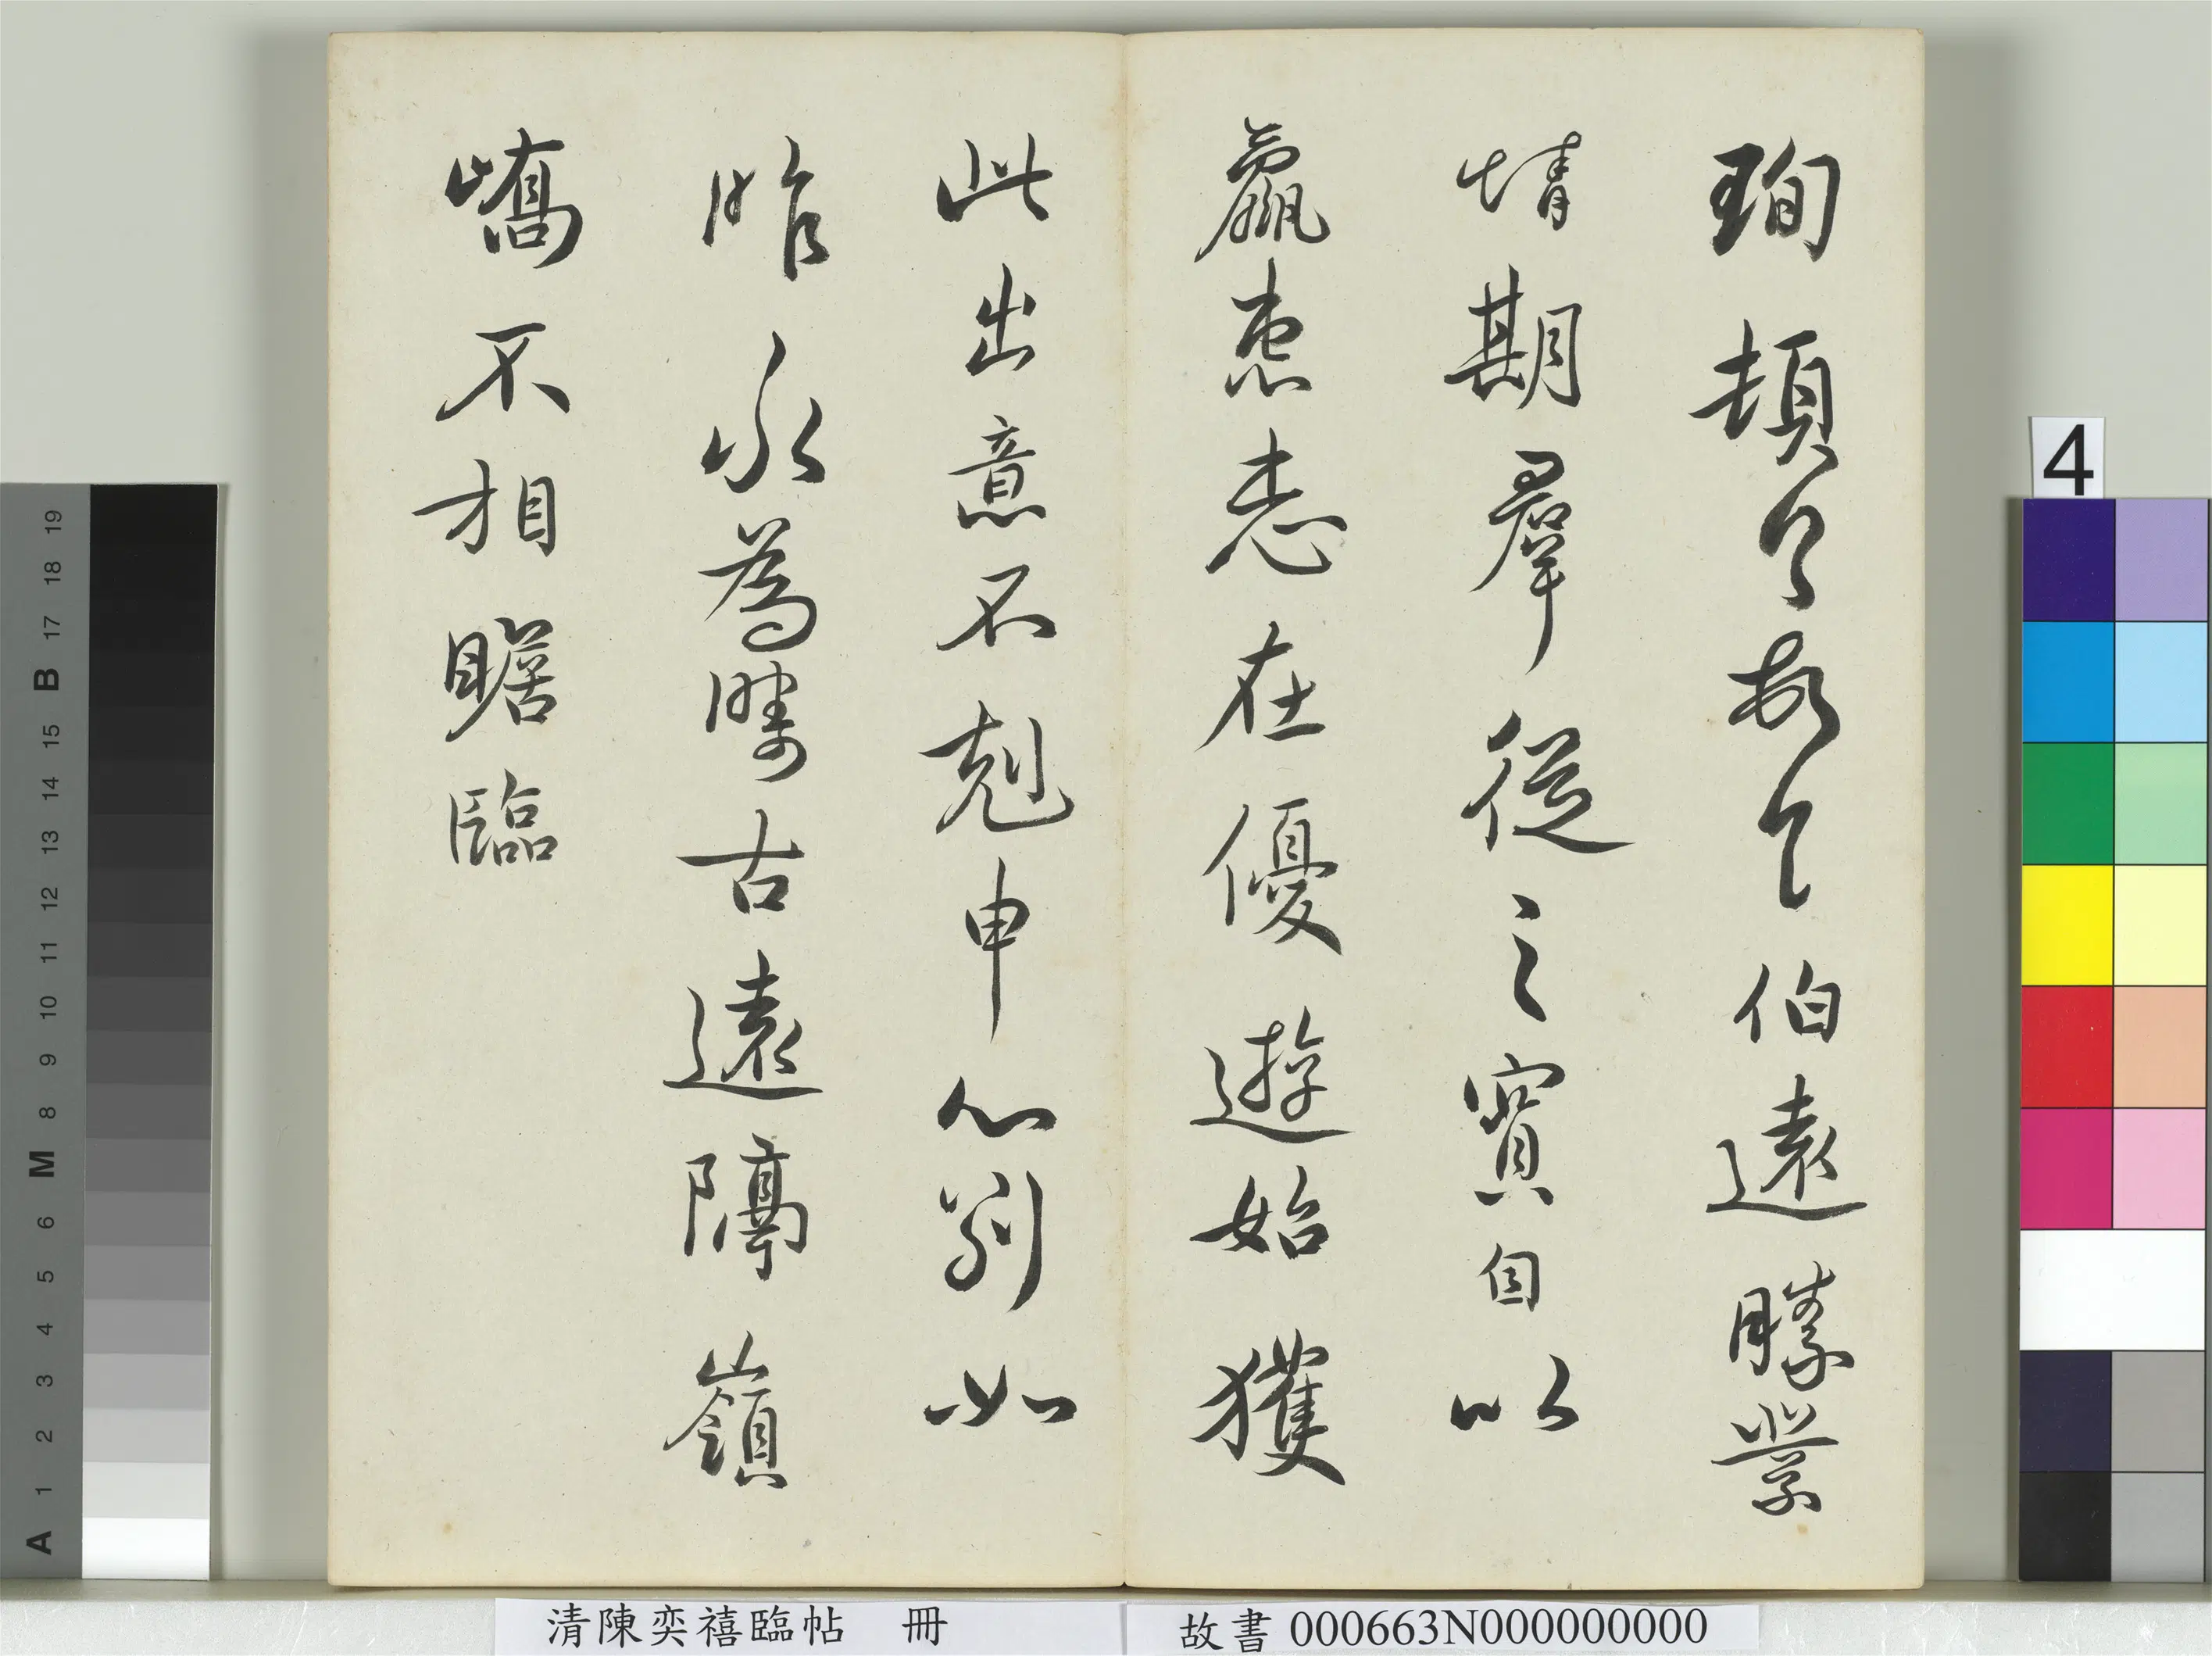 珣頓首頓首伯遠勝業
情期羣從之寳自以
羸患志在優遊始獲
此出意不剋申分別如
昨永為疇古遠隔嶺
嶠不相瞻臨
4
19
18
17
B
15
14
13
12
11
10
9
8
M
6
5
4
3
2
1
A
清陳奕禧臨帖 冊
故書 000663N000000000